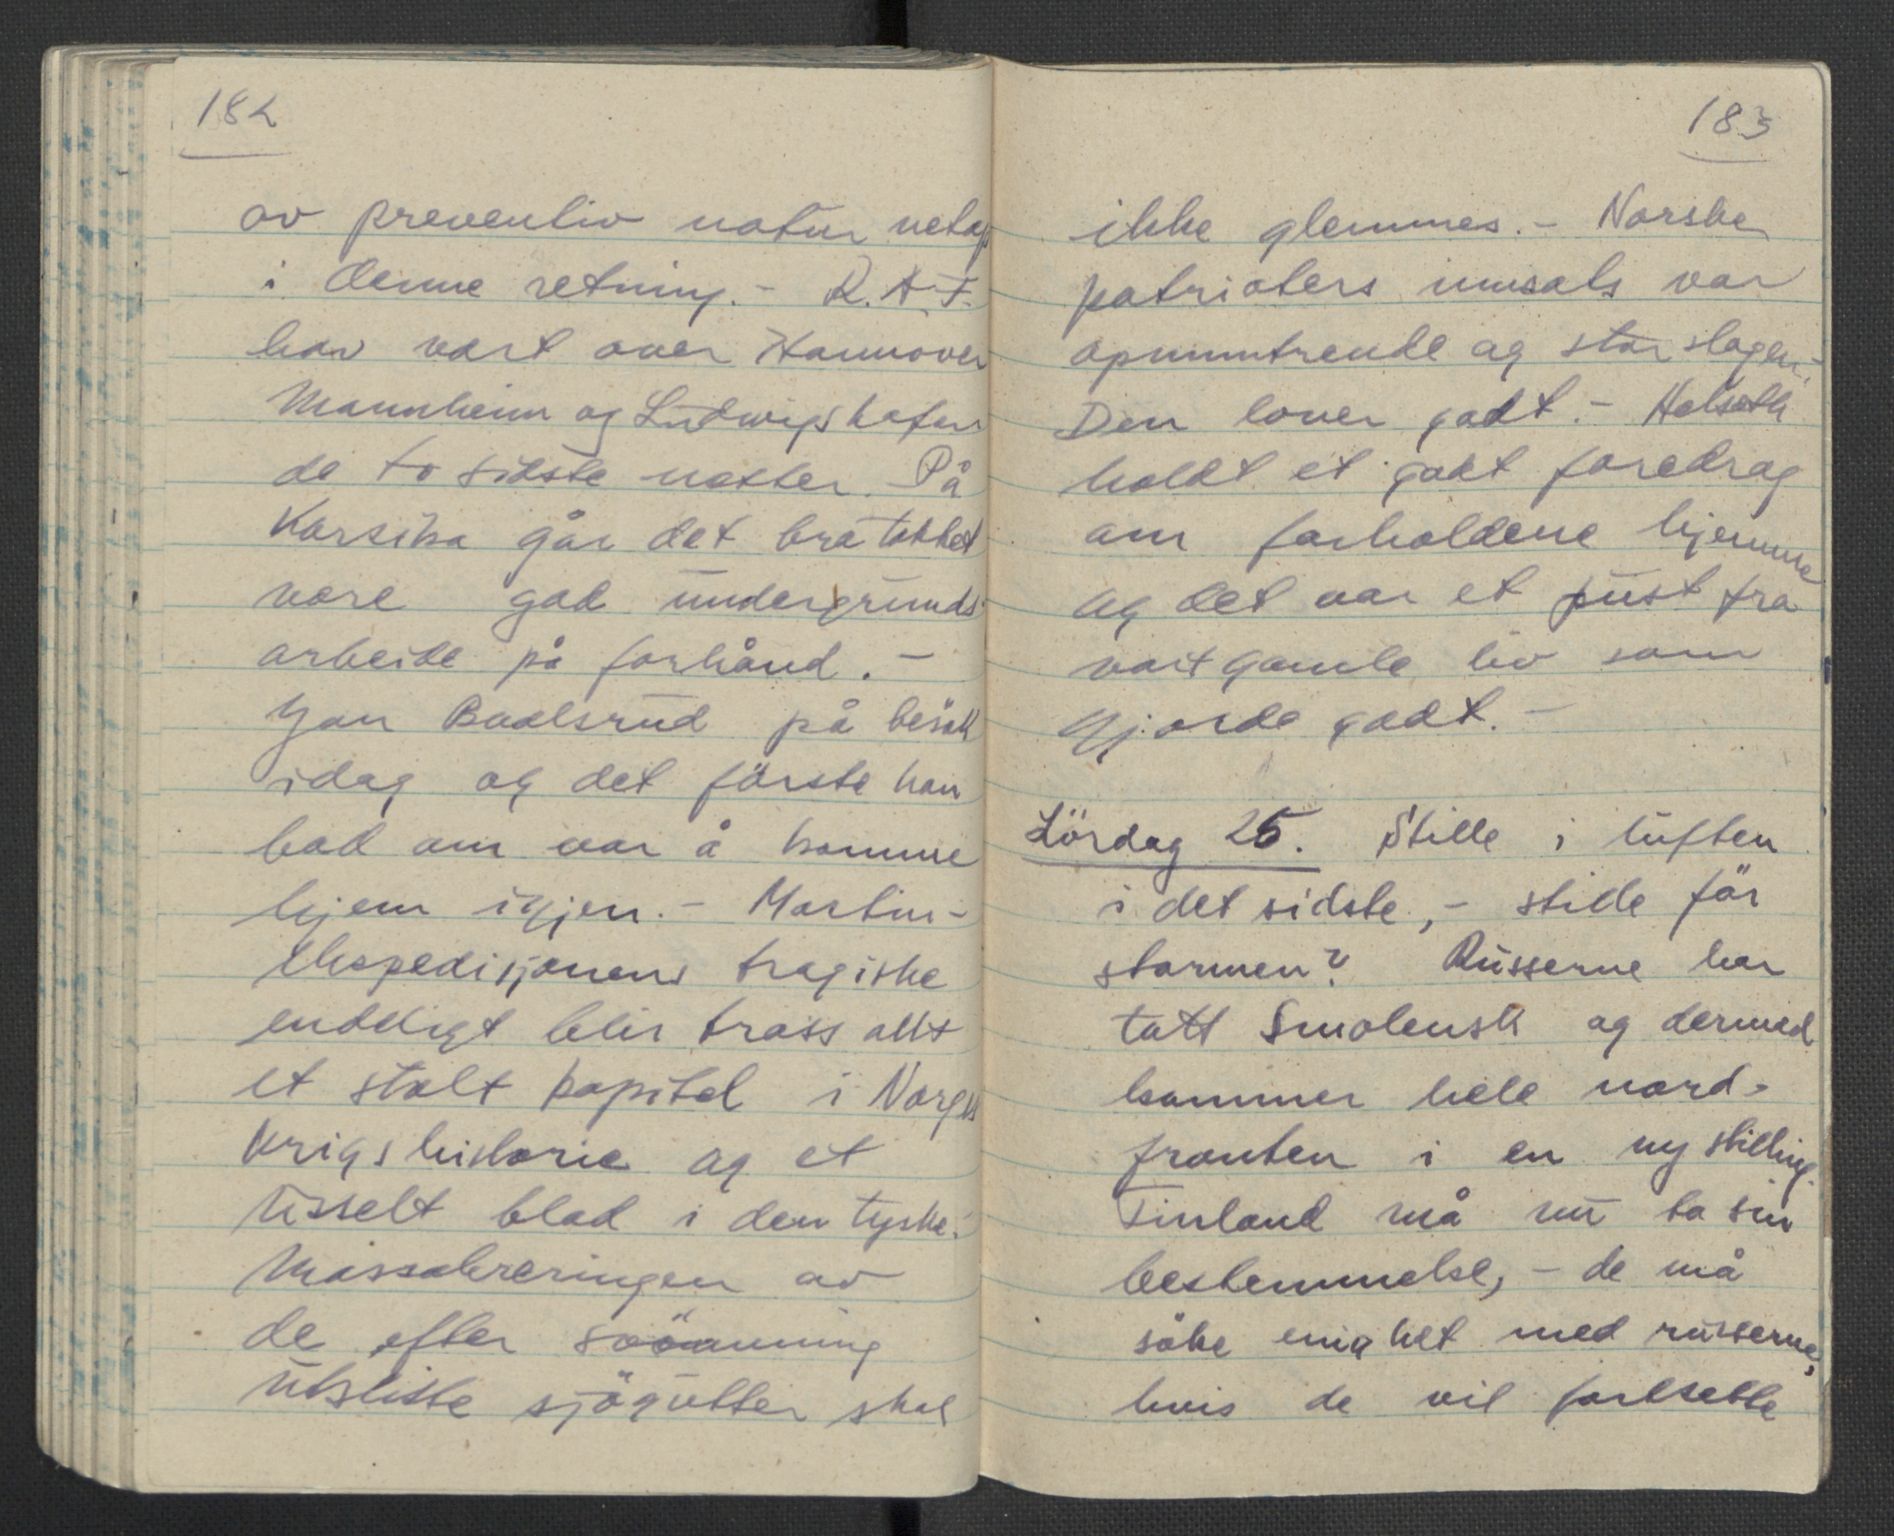 182
av preventiv natur netop
i denne retning. - R.A.F.
har vært over Hannover
Mannheim og Ludwigshafen
de to sidste netter. På
Korsika går det bra takket
være god undergrunds-
arbeide på forhånd. -
Jan Baalsrud på besök
idag og det förste han
bad om var å komme
hjem igjen. - Martin-
ekspedisjonens tragiske
endeligt blir trass allt
et stolt kapitel i Norges
krigshistorie og et
usselt blad i den tyske.
Massakreringen av
de efter svömning
utslitte sjögutter skal
183
ikke glemmes. - Norske
patrioters innsats var
opmuntrende og storslagen.
Den lover godt. - Halseth
holdt et godt foredrag
om forholdene hjemme
og det var et pust fra
vort gamle liv som
gjorde godt. -
Lördag 25. Stille i luften
i det sidste, - stille för
stormen? Russerne har
tatt Smolensk og dermed
kommer hele nord-
fronten i en ny stilling.
Finland må nu ta sin
bestemmelse, - de må
söke enighet med russerne,
hvis de vil fortsette